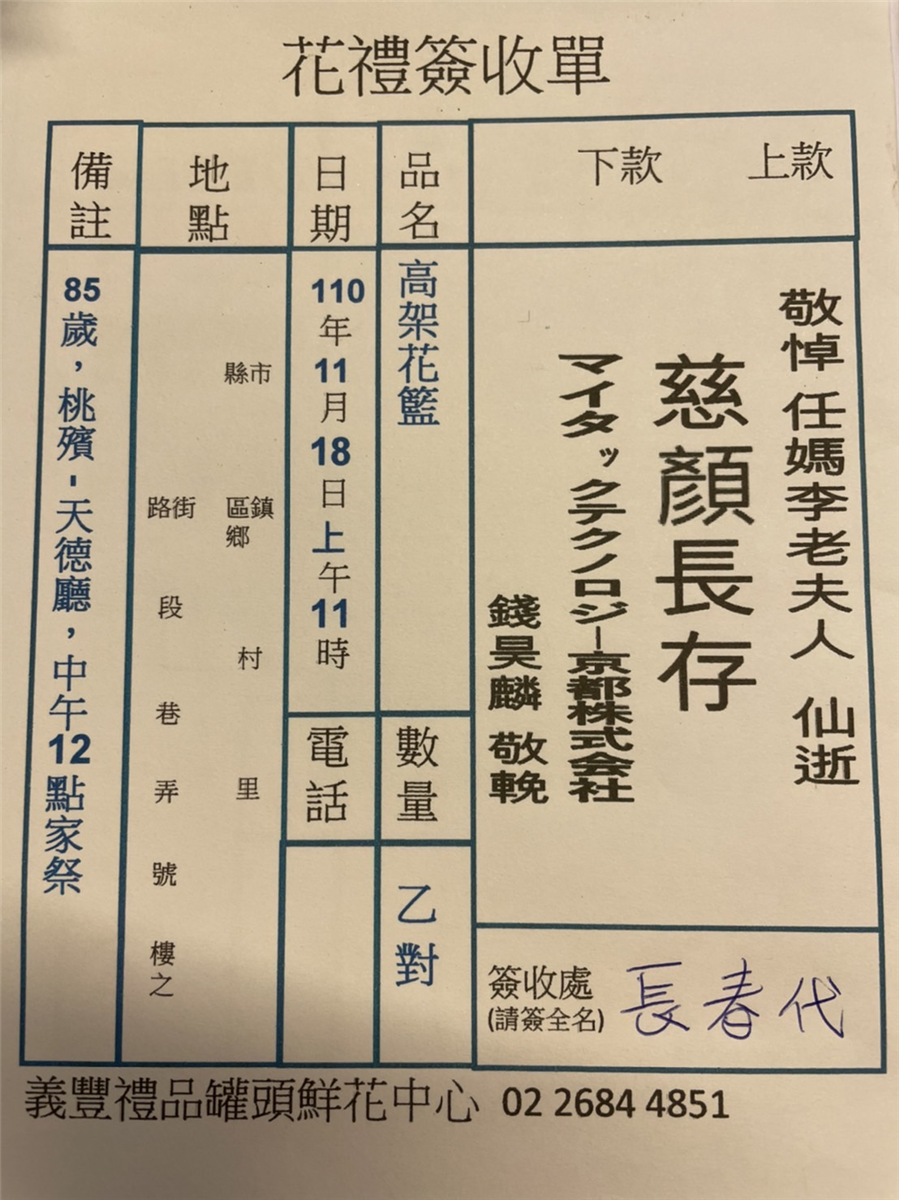 花禮簽收單
上款
下款
品名
日期
地點
備註
敬悼 任媽李老夫人 仙逝
慈顏長存
マイタックテクノロジー京都株式会社
錢昊麟 敬輓
高架花籃
數量
乙對
110年11月18日上午11時
電話
縣市 區鎮鄉 村 里
路街 段 巷 弄 號 樓之
85歲，桃殯-天德廳，中午12點家祭
簽收處
(請簽全名)
長春代
義豐禮品罐頭鮮花中心 02 2684 4851